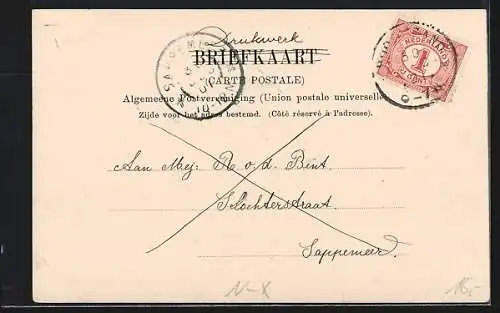 Drukwerk
BRIEFKAART
(CARTE POSTALE)
Algemeene Postvereeniging (Union postale universelle)
Zijde voor het adres bestemd. (Côté réservé à l'adresse).
SAPPEMEER
NEDERLAND
1
CENT
Aan Mej: R. v. d. Bent.
Slochterstraat
Sappemeer.
N-X
16,-